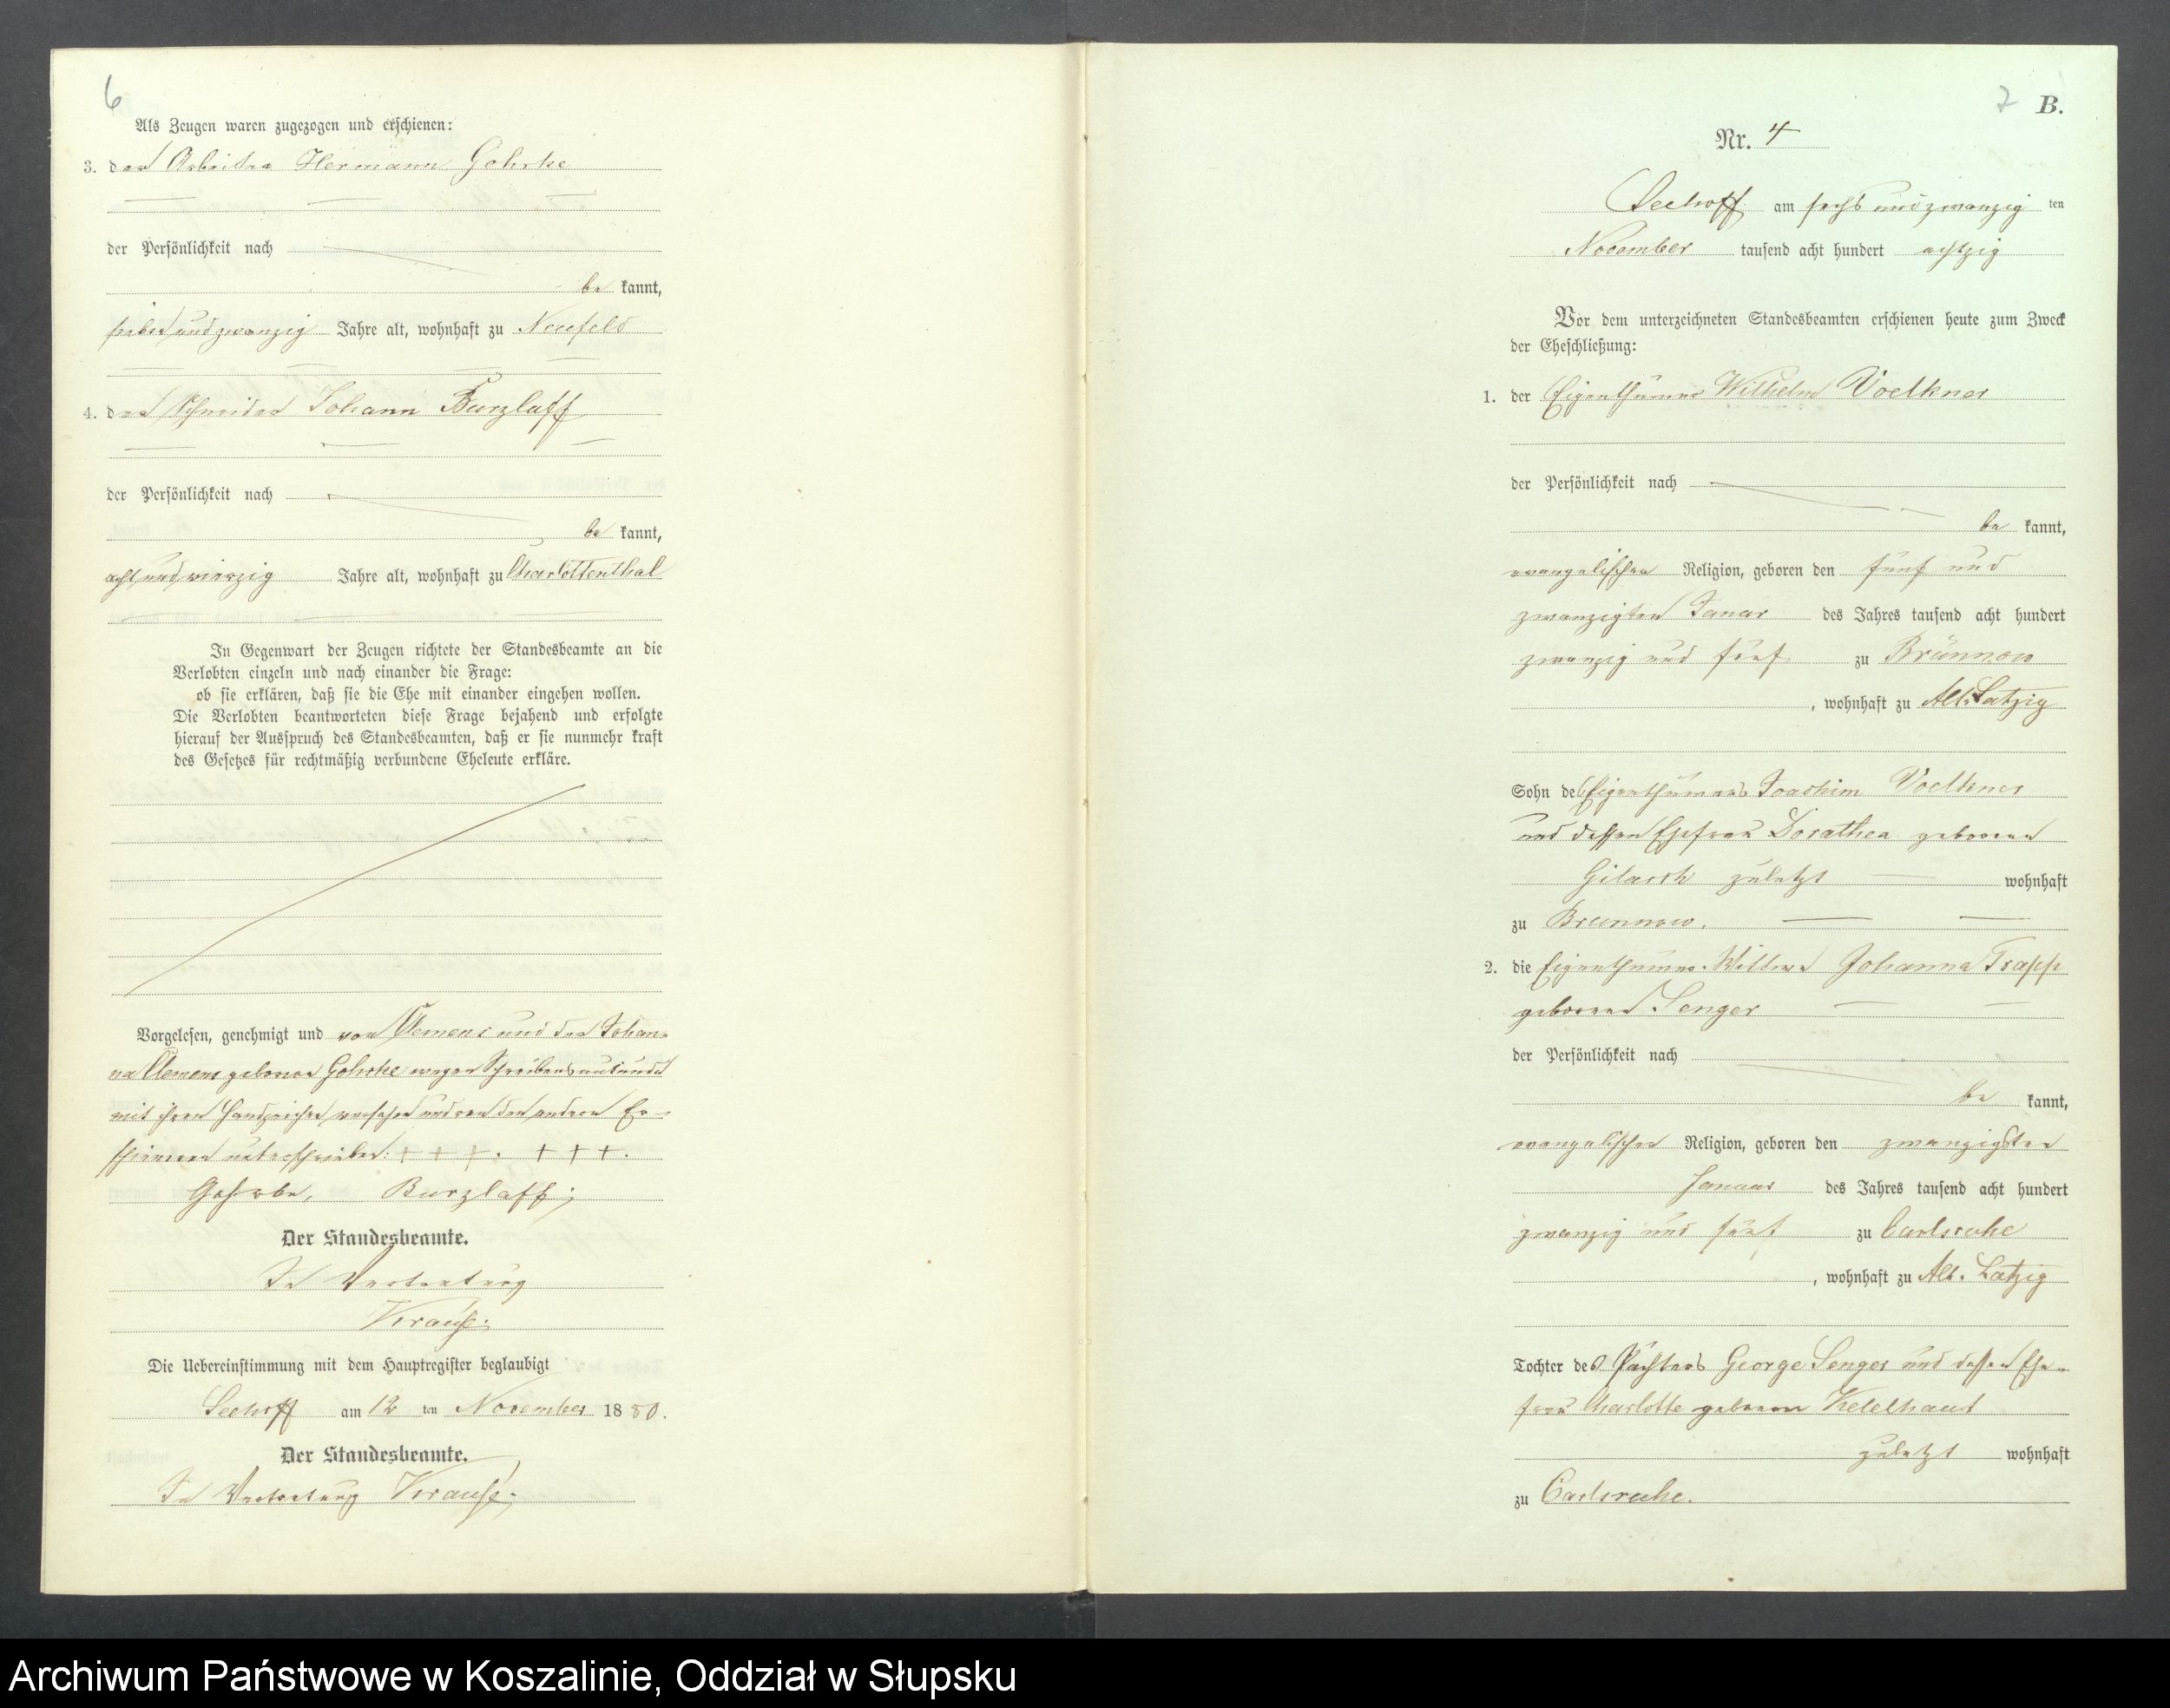 6
Als Zeugen waren zugezogen und erschienen:
3. der Arbeiter Hermann Gohrke
der Persönlichkeit nach
be kannt,
sieben und zwanzig Jahre alt, wohnhaft zu Neufeld
4. der Schneider Johann Burzlaff
der Persönlichkeit nach
be kannt,
acht und vierzig Jahre alt, wohnhaft zu Charlottenthal
In Gegenwart der Zeugen richtete der Standesbeamte an die
Verlobten einzeln und nach einander die Frage:
ob sie erklären, daß sie die Ehe mit einander eingehen wollen.
Die Verlobten beantworteten diese Frage bejahend und erfolgte
hierauf der Ausspruch des Standesbeamten, daß er sie nunmehr kraft
des Gesetzes für rechtmäßig verbundene Eheleute erkläre.
Vorgelesen, genehmigt und von Clemens und der Johan-
na Clemens geborne Gohrke wegen Schreibensunkunde
mit ihren Handzeichen versehen und von den andern Er-
schienenen unterschrieben: + + +. + + +.
Gohrke, Burzlaff;
Der Standesbeamte.
In Vertretung
Krause.
Die Uebereinstimmung mit dem Hauptregister beglaubigt
Seehoff am 12 ten November 1880.
Der Standesbeamte.
In Vertretung Krause.
7 B.
Nr. 4
Seehoff am sechs und zwanzig ten
November tausend acht hundert achtzig
Vor dem unterzeichneten Standesbeamten erschienen heute zum Zweck
der Eheschließung:
1. der Eigenthümer Wilhelm Voelkner
der Persönlichkeit nach
be kannt,
evangelischer Religion, geboren den fünf und
zwanzigten Januar des Jahres tausend acht hundert
zwanzig und fünf zu Brünnow
, wohnhaft zu Alt Latzig
Sohn des Eigenthümers Joachim Voelkner
und dessen Ehefrau Dorathea geborene
zuletzt wohnhaft
zu Brunnow.
2. die Eigenthümer-Wittwe Johanna Trapp
geborene Senger
der Persönlichkeit nach
be kannt,
evangelischer Religion, geboren den zwanzigsten
Januar des Jahres tausend acht hundert
zwanzig und fünf zu Carlsruhe
, wohnhaft zu Alt-Latzig
Tochter des Pächters George Senger und dessen Ehe-
frau Charlotte geborene
zuletzt wohnhaft
zu Carlsruhe.
Archiwum Państwowe w Koszalinie, Oddział w Słupsku